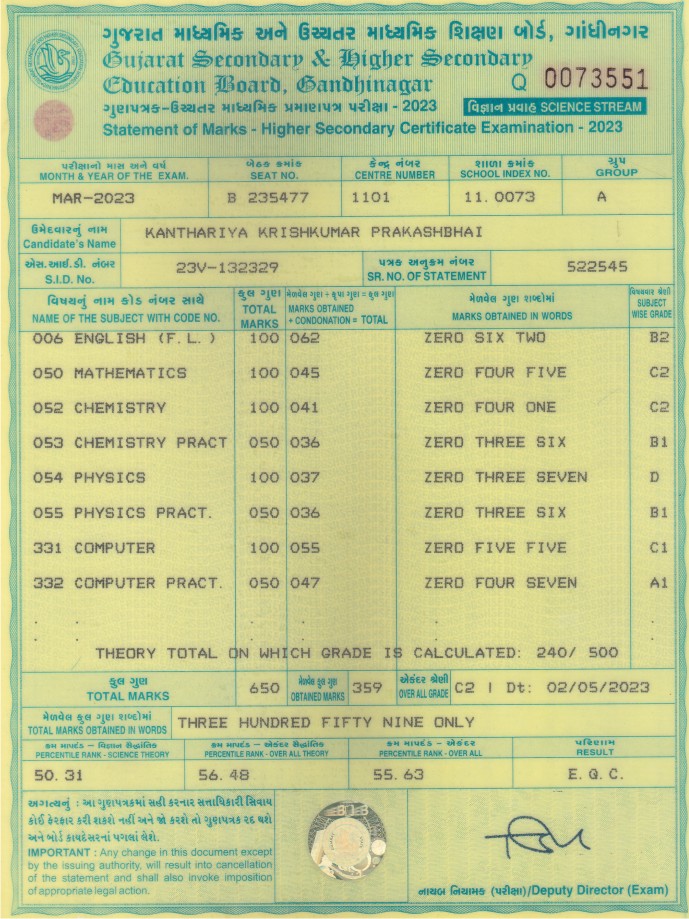 ગુજરાત માધ્યમિક અને ઉચ્ચતર માધ્યમિક શિક્ષણ બોર્ડ, ગાંધીનગર
Gujarat Secondary & Higher Secondary
Education Board, Gandhinagar
Q 0073551
ગુણપત્રક-ઉચ્ચતર માધ્યમિક પ્રમાણપત્ર પરીક્ષા - 2023 વિજ્ઞાન પ્રવાહ SCIENCE STREAM
Statement of Marks - Higher Secondary Certificate Examination - 2023
પરીક્ષાનો માસ અને વર્ષ બેઠક ક્રમાંક કેન્દ્ર નંબર શાળા ક્રમાંક ગ્રુપ
MONTH & YEAR OF THE EXAM. SEAT NO. CENTRE NUMBER SCHOOL INDEX NO. GROUP
MAR-2023 B 235477 1101 11.0073 A
ઉમેદવારનું નામ
Candidate's Name
KANTHARIYA KRISHKUMAR PRAKASHBHAI
એસ.આઈ.ડી. નંબર
S.I.D. No.
23V-132329
પત્રક અનુક્રમ નંબર
SR. NO. OF STATEMENT
522545
વિષયનું નામ કોડ નંબર સાથે
NAME OF THE SUBJECT WITH CODE NO.
કુલ ગુણ
TOTAL
MARKS
મેળવેલ ગુણ + કૃપા ગુણ = કુલ ગુણ
MARKS OBTAINED
+ CONDONATION = TOTAL
મેળવેલ ગુણ શબ્દોમાં
MARKS OBTAINED IN WORDS
વિષયવાર શ્રેણી
SUBJECT
WISE GRADE
006 ENGLISH (F.L.) 100 062 ZERO SIX TWO B2
050 MATHEMATICS 100 045 ZERO FOUR FIVE C2
052 CHEMISTRY 100 041 ZERO FOUR ONE C2
053 CHEMISTRY PRACT 050 036 ZERO THREE SIX B1
054 PHYSICS 100 037 ZERO THREE SEVEN D
055 PHYSICS PRACT. 050 036 ZERO THREE SIX B1
331 COMPUTER 100 055 ZERO FIVE FIVE C1
332 COMPUTER PRACT. 050 047 ZERO FOUR SEVEN A1
. . . . .
. . . . .
THEORY TOTAL ON WHICH GRADE IS CALCULATED: 240/ 500
કુલ ગુણ
TOTAL MARKS
650
મેળવેલ કુલ ગુણ
OBTAINED MARKS
359
એકંદર શ્રેણી
OVER ALL GRADE
C2 | Dt: 02/05/2023
મેળવેલ કુલ ગુણ શબ્દોમાં
TOTAL MARKS OBTAINED IN WORDS
THREE HUNDRED FIFTY NINE ONLY
ક્રમ માપદંડ – વિજ્ઞાન સૈદ્ધાંતિક ક્રમ માપદંડ – એકંદર સૈદ્ધાંતિક ક્રમ માપદંડ - એકંદર પરિણામ
PERCENTILE RANK - SCIENCE THEORY PERCENTILE RANK - OVER ALL THEORY PERCENTILE RANK - OVER ALL RESULT
50.31 56.48 55.63 E.Q.C.
અગત્યનું : આ ગુણપત્રકમાં સહી કરનાર સત્તાધિકારી સિવાય
કોઈ ફેરફાર કરી શકશે નહીં અને જો કરશે તો ગુણપત્રક રદ થશે
અને બોર્ડ કાયદેસરનાં પગલાં લેશે.
IMPORTANT : Any change in this document except
by the issuing authority, will result into cancellation
of the statement and shall also invoke imposition
of appropriate legal action.
નાયબ નિયામક (પરીક્ષા)/Deputy Director (Exam)